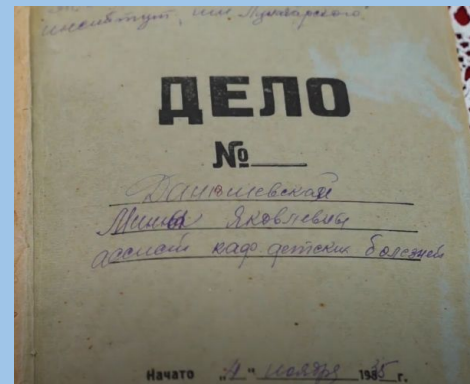 институт им Луначарского
ДЕЛО
№
Данишевской
Мины Яковлевны
ассист каф детских болезней
Начато "4" ноября 1935 г.